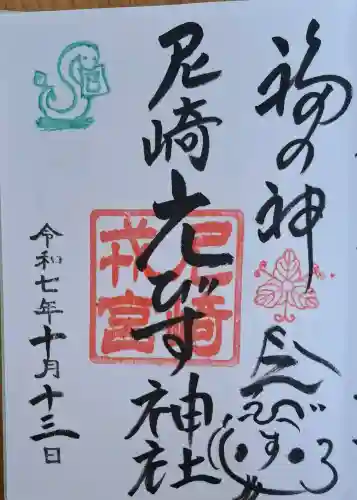 福の神
尼崎えびす神社
尼崎
戎宮
えびす
令和七年十月十三日